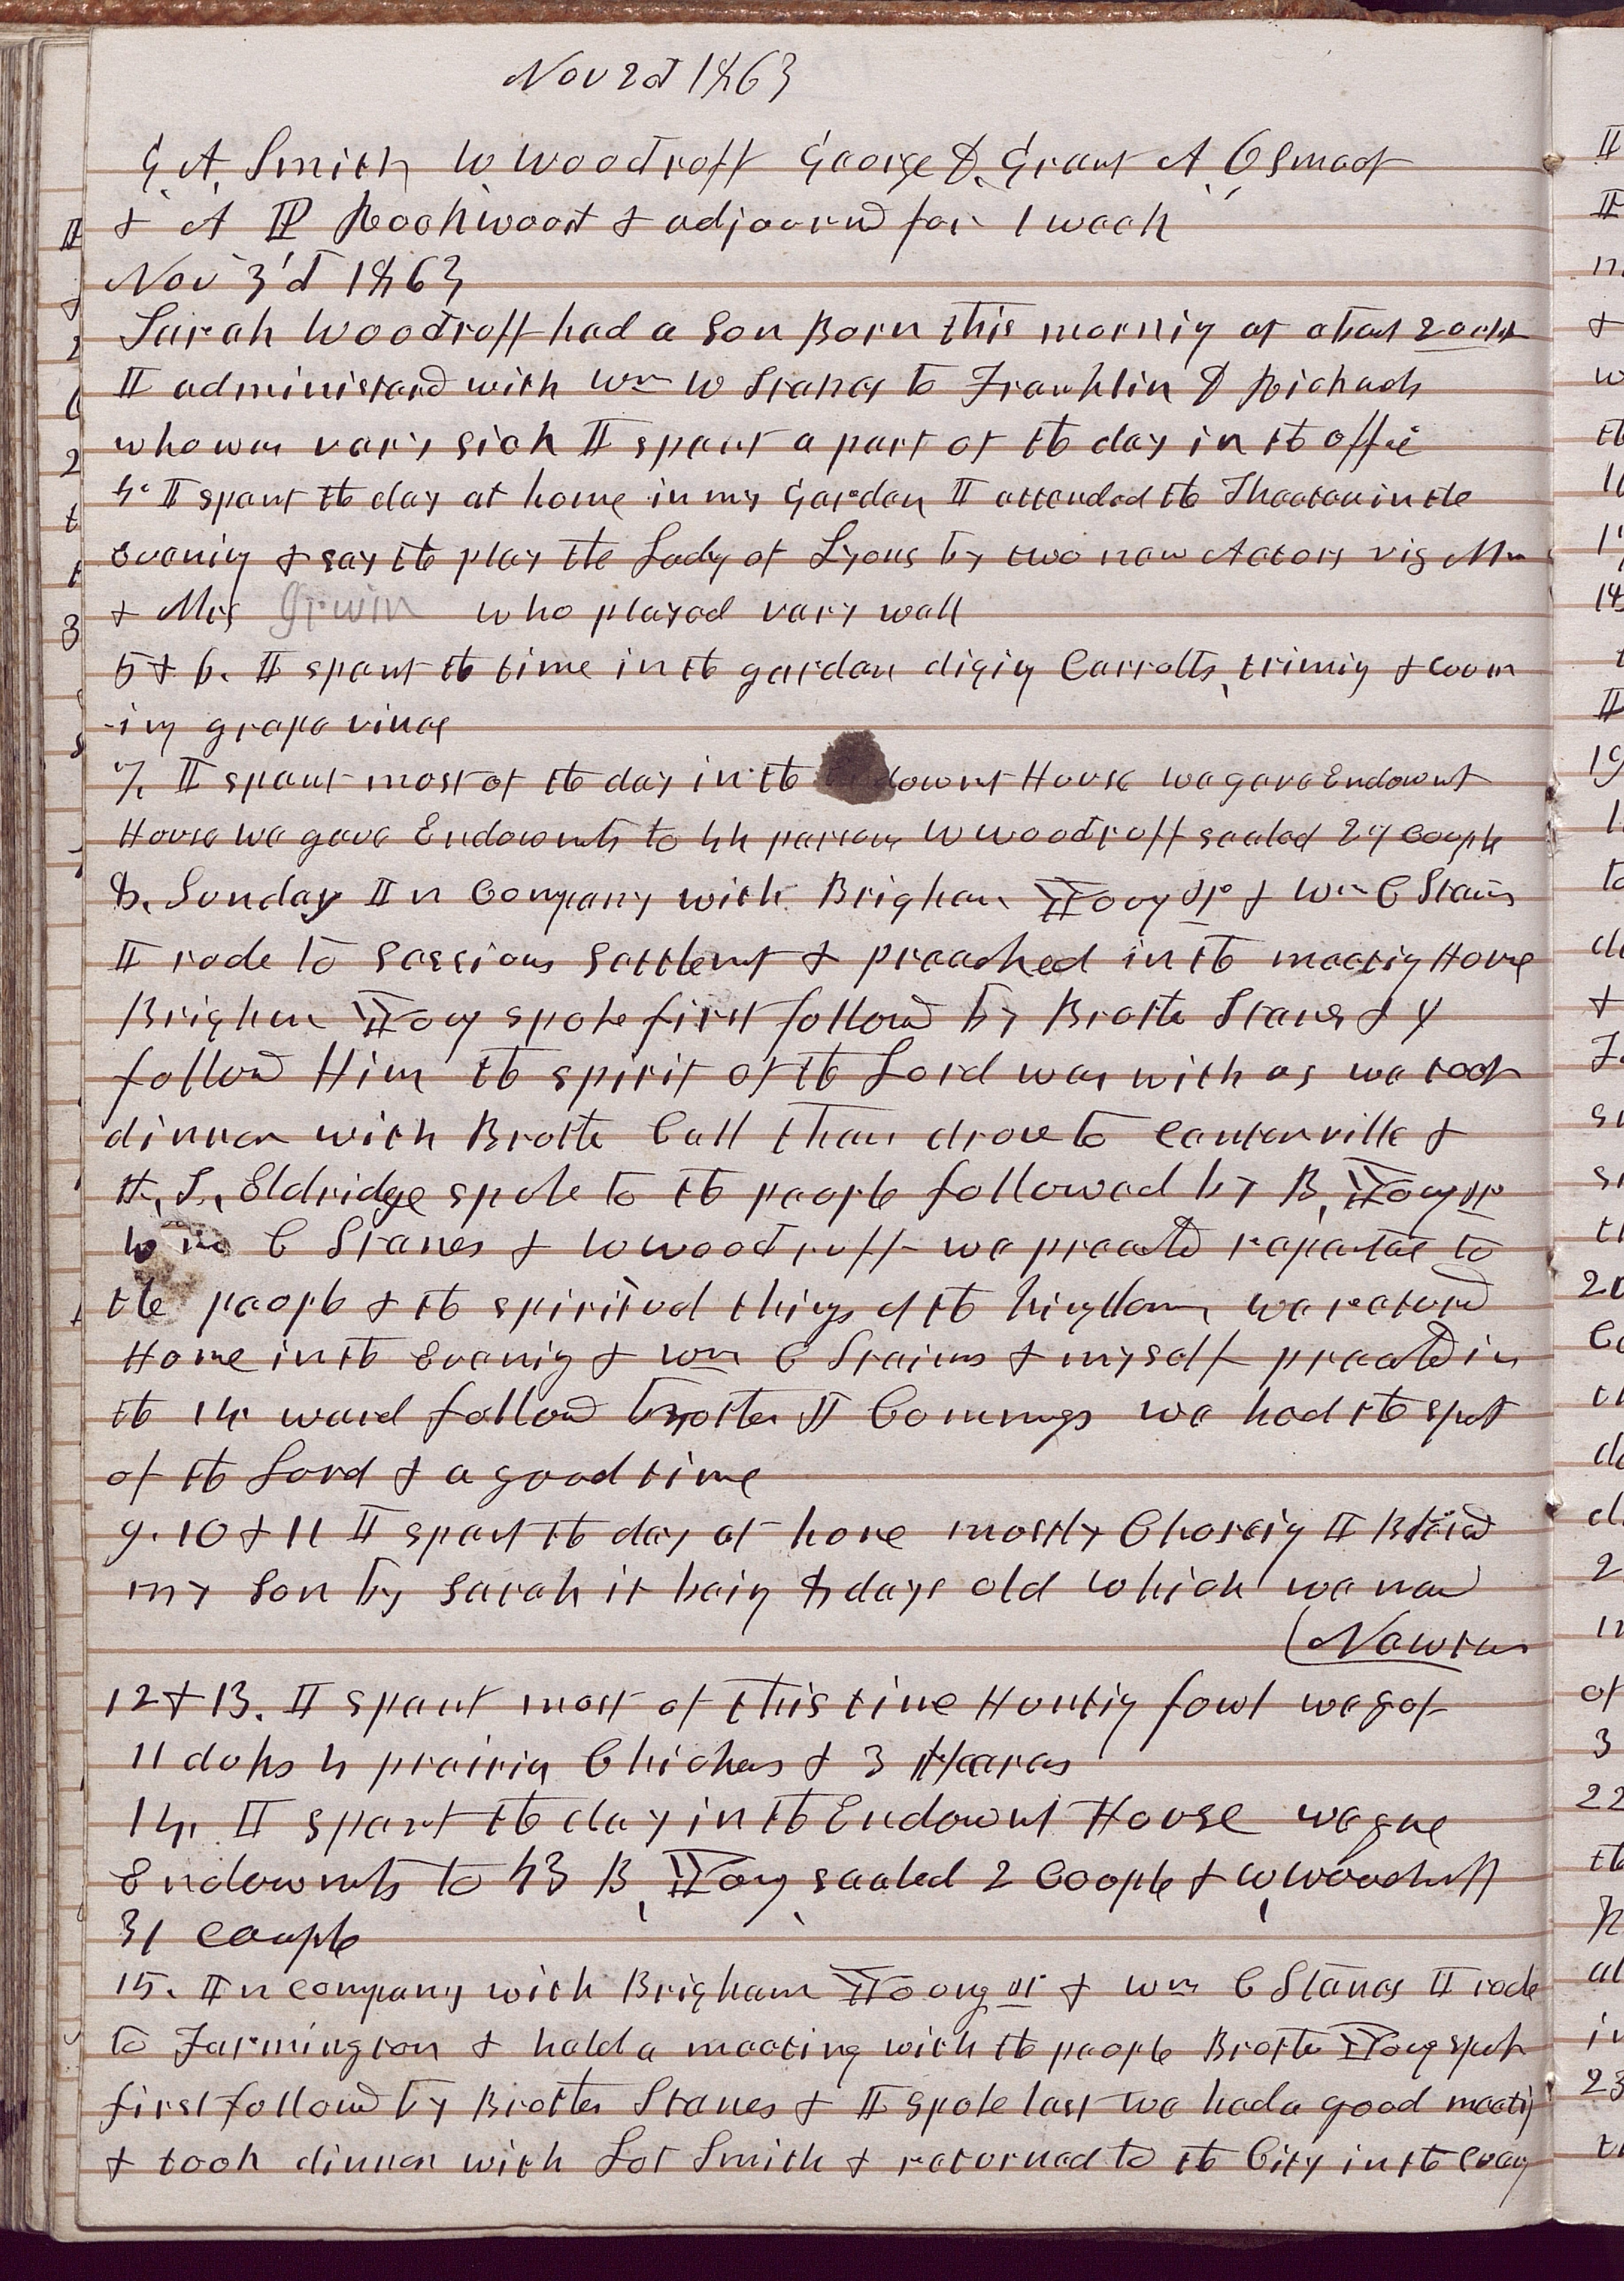 Nov 2d 1863
G. A. Smith W Woodruff George D. Grant A O Smoot
& A P Rockwood & adjourned for 1 week
Nov 3'd 1863
Sarah Woodruff had a Son Born this mornig at about 2 oclok
I administered with Wm W Stanes to Franklin D Richards
who was vary sick I spent a part of the day in the offie
4. I spent the day at home in my Garden I attended the Theater in the
evenig & say the play the Lady of Lyons by two new Actors viz Mr
& Mrs Irwin who played vary well
5 & 6. I spent the time in the garden digig Carrotts, trimig &
-ing grape vines
7. I spent most of the day in the Endowmt House we gave Endowmt
House we gave Endowmts to 44 persons W Woodruff sealed 27 Couple
8. Sunday In Company with Brigham Young Jr & Wm C Stains
I rode to Sessions Settlemt & preached in the meetig House
Brigham Young spoke first followd by Brother Stanes & I
followd Him the spirit of the Lord was with us we took
dinner with Brother Call then drove to Centerville &
H. S. Eldridge spoke to the people followed by B. Young Jr
Wm C Stanes & W Woodruff we preachd repentae to
the people & the spiritual things of the kingdom we returnd
Home in the Evenig & Wm C Stains & myself preachd in
the 14 ward followd brother J Cummings we had the spirt
of the Lord & a good time
9. 10 & 11 I spent the day at home mostly Choreig I Buried
my Son by Sarah it being 8 days old which we namd
(Newton
12 & 13. I spent most of this time Huntig fowl we got
11 duks 4 prairie Chickens & 3 Heares
14. I spent the day in the Endowmt House we gave
Endowmts to 43 B, Young, sealed 2 Couple & W Woodruff
31 couple
15. In company with Brigham Young Jr & Wm C Stanes I rode
to Farmington & held a meeting with the people Brother Young spoke
first followd by Brother Stanes & I spoke last we had a good meetig
& took dinner with Lot Smith & returned to the City in the eveng